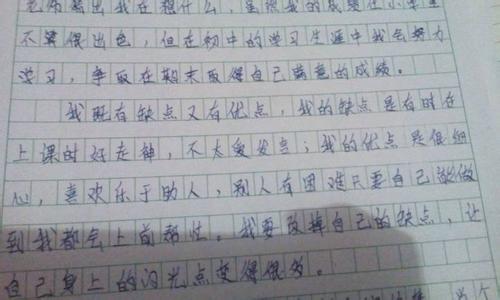 我在想什么，虽然我的成绩在小学里
不算很出色，但在初中的学习生涯中我会努力
学习，争取在期末取得自己满意的成绩。
我既有缺点又有优点，我的缺点是有时在
上课时好走神，不太爱发言；我的优点是很细
心，喜欢乐于助人，别人有困难只要自己能做
到我都会上前帮忙。我要改掉自己的缺点，让
自己身上的闪光点变得很多。